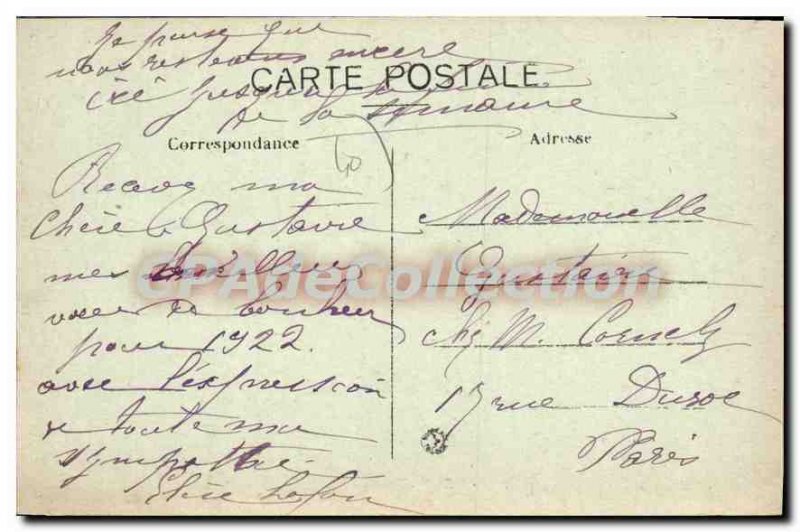 Je pense que
nous resterons encore
ici jusqu'à la fin
de la semaine
CARTE POSTALE
Correspondance
Adresse
40
Recevez ma
chère Gustavie
mes meilleurs
voeux de bonheur
pour 1922
avec l'expression
de toute ma
sympathie
Elise
Mademoiselle
Gustavie
chez M. Cornely
13 rue Duroc
Paris
CPAdeCollection